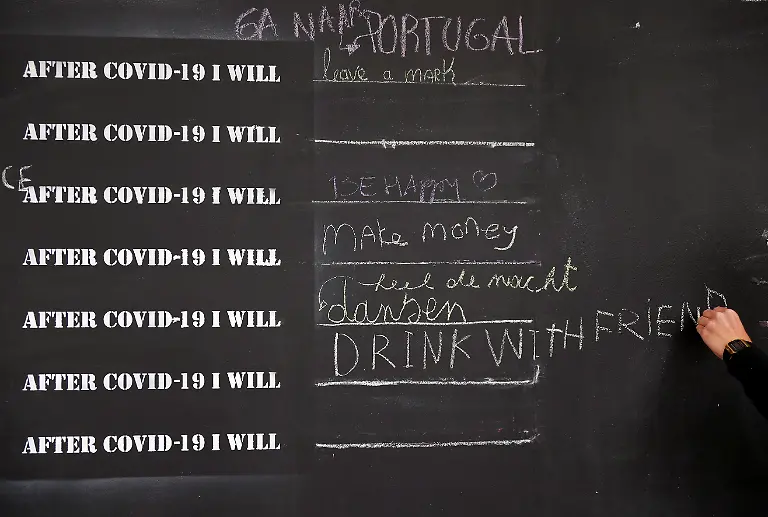 GA NAAR PORTUGAL
AFTER COVID-19 I WILL leave a MARK
AFTER COVID-19 I WILL
CE
AFTER COVID-19 I WILL BE HAppy ♡
AFTER COVID-19 I WILL MAke money
heel de nacht
AFTER COVID-19 I WILL dansen
AFTER COVID-19 I WILL DRINK WITH FRIEND
AFTER COVID-19 I WILL